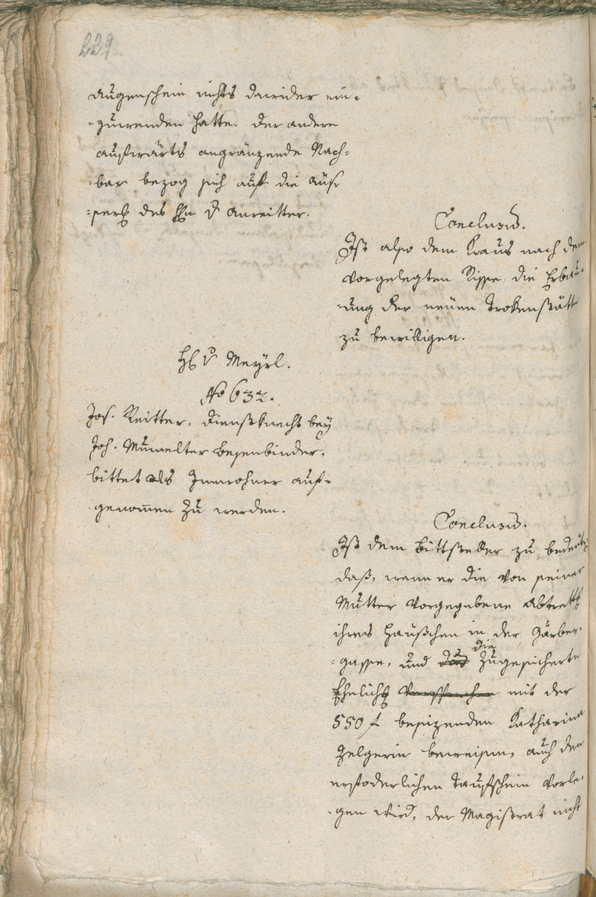 229
Augenschein nichts dawider ein-
-zuwenden hatte. Der andere
aufwärts angränzende Nach-
-bar bezog sich auf die Aus-
des H. v Anreitter.
Conclusum.
Ist also dem Kraus nach dem
vorgelegten Risse, die Erbau-
-ung der neuen Trokenstätte
zu bewilligen.
H. v Meyrl.
No 632.
Jos. Reitter, Dienstknecht bey
Joh. Mumelter Besenbinder,
bittet als Innwohner auf-
genommen zu werden.
Conclusum.
Ist dem Bittsteller zu bedeuten,
daß, wenn er die von seiner
Mutter vorgegebene Abtrettg
ihres Häußchen in der Gärber-
-gasse, und die zugesicherte
Ehelichg mit der
550 f besizenden Katharina
Zelgerin beweisen, auch den
erfoderlichen Taufschein vorle-
-gen wird, der Magistrat nicht